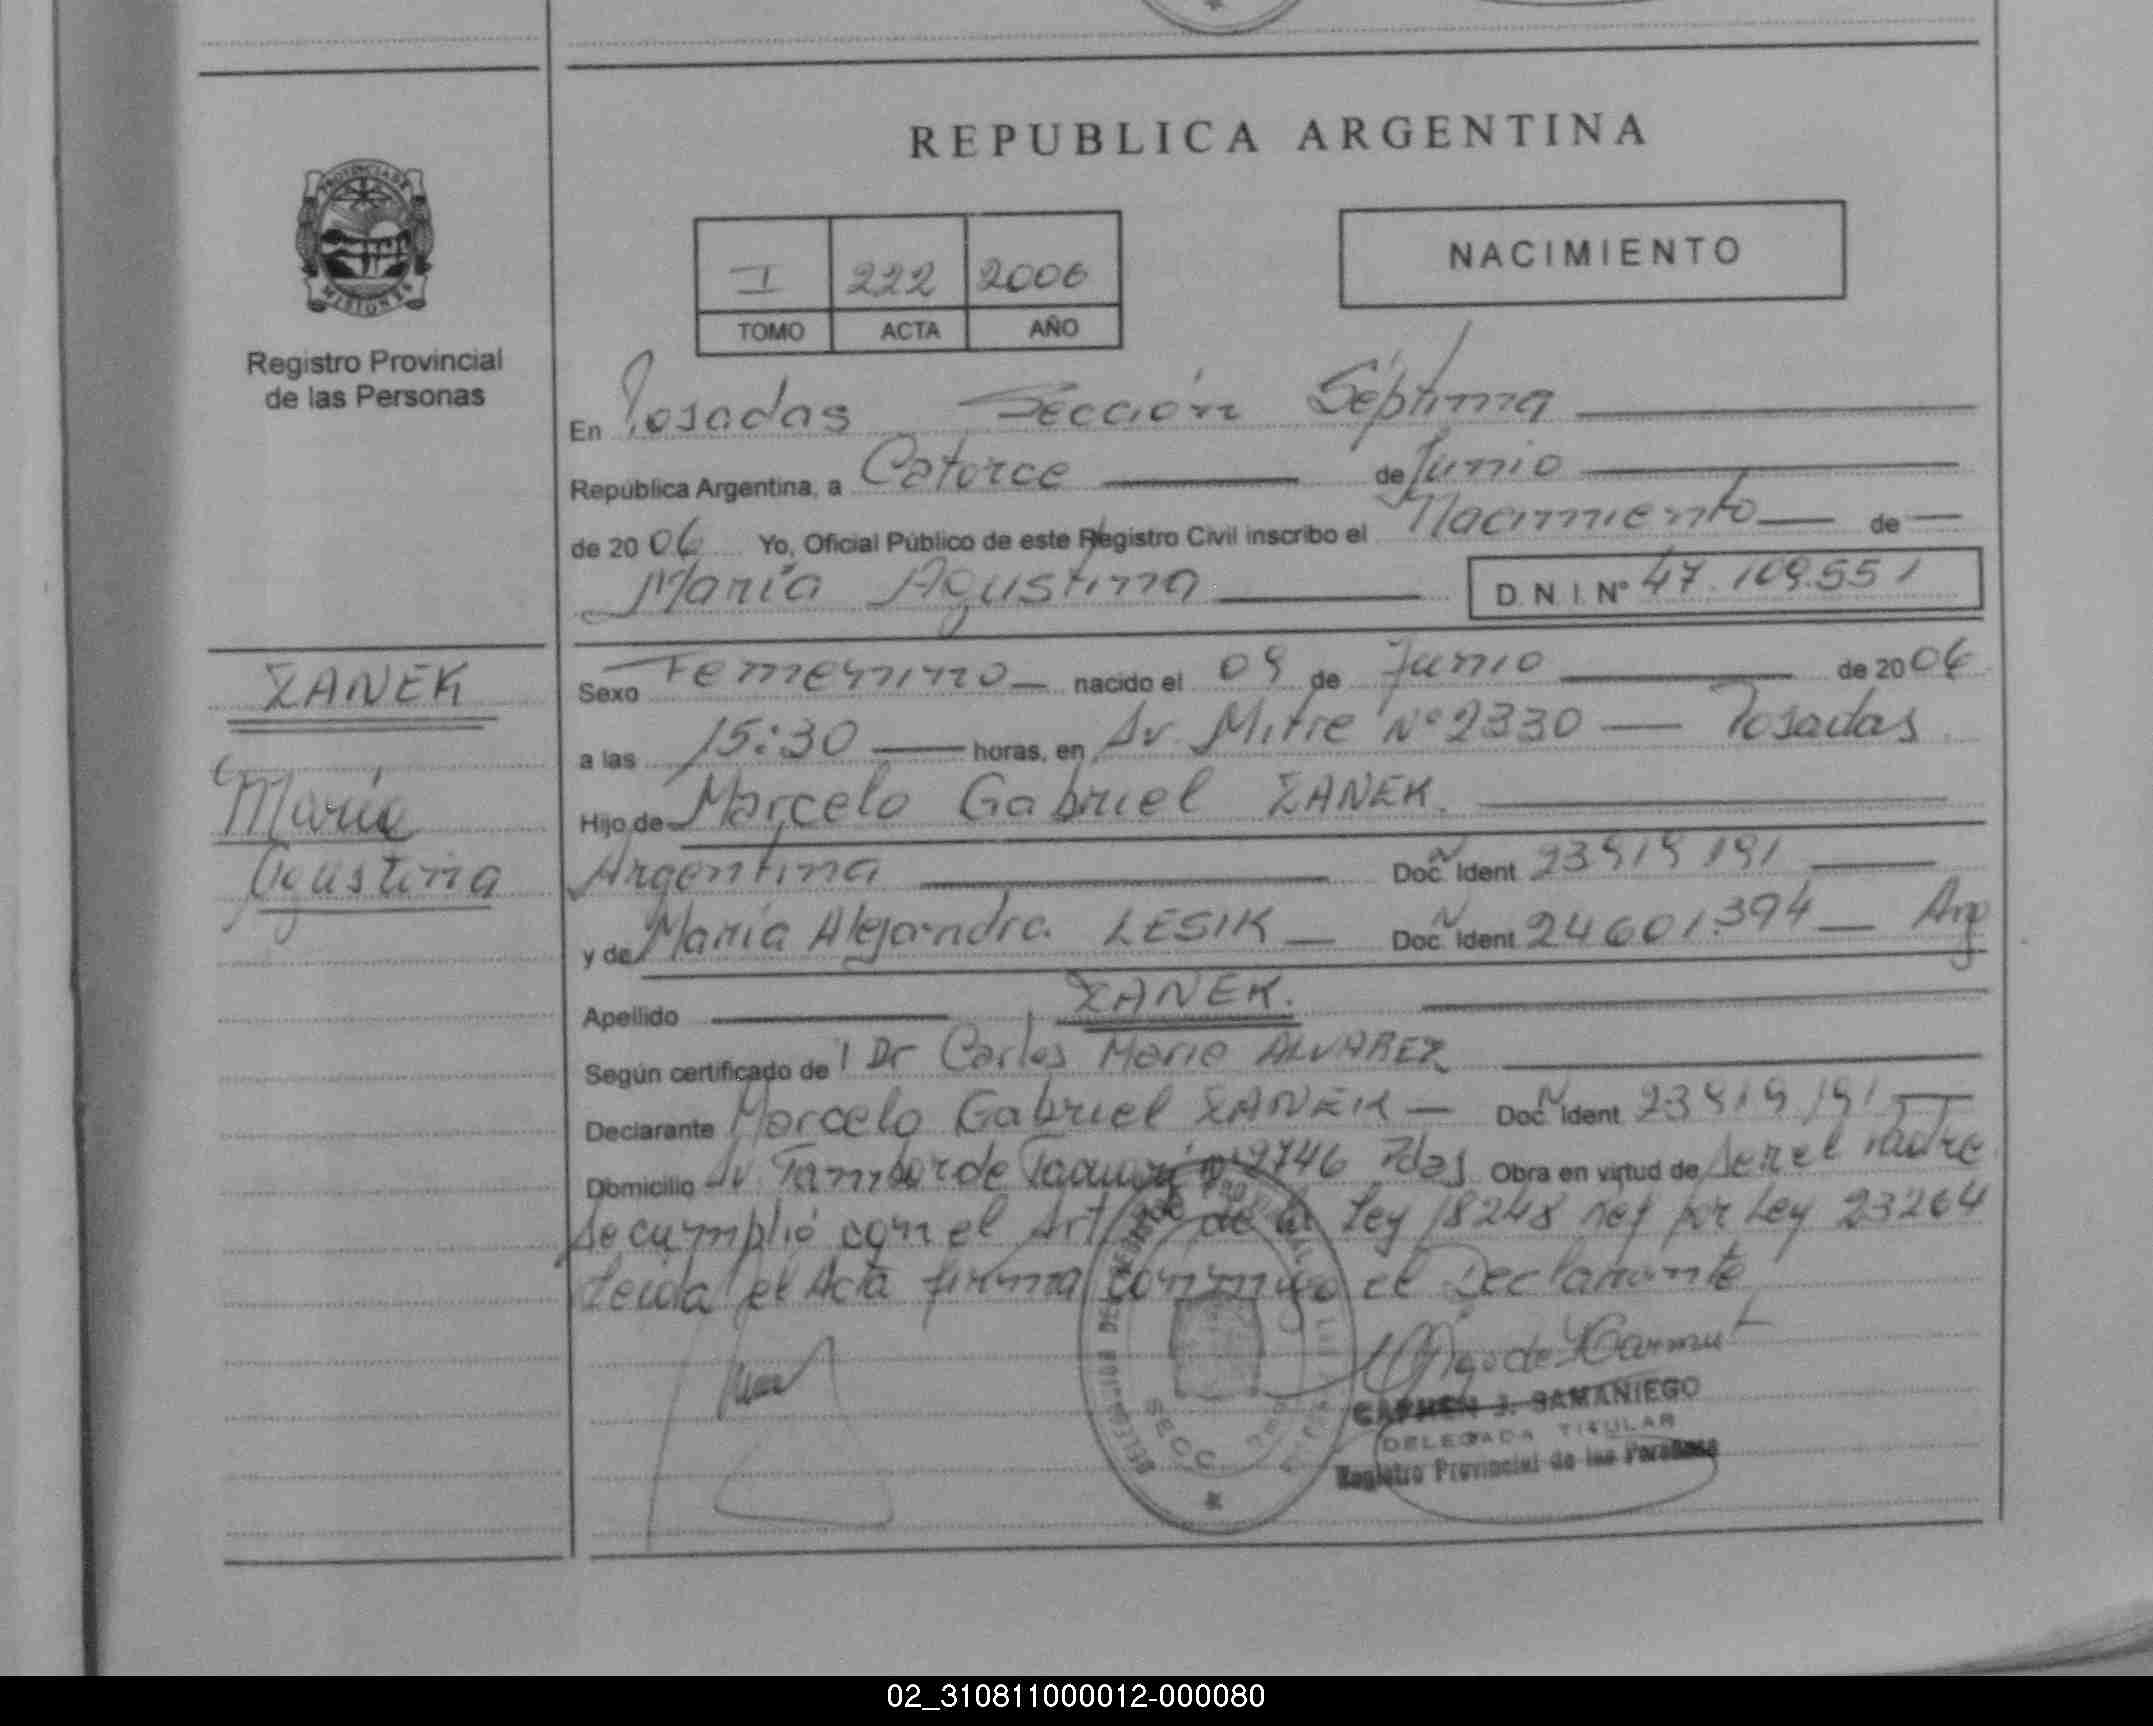 REPUBLICA ARGENTINA
PROVINCIA DE
MISIONES
Registro Provincial
de las Personas
I 222 2006
TOMO ACTA AÑO
NACIMIENTO
En Posadas Sección Séptima
República Argentina, a Catorce de Junio
de 2006 Yo, Oficial Público de este Registro Civil inscribo el Nacimiento de
María Agustina D.N.I. Nº 47.109.551
ZANEK
María
Agustina
Sexo Femenino nacido el 09 de Junio de 2006
a las 15:30 horas, en Av. Mitre Nº 2330 Posadas
Hijo de Marcelo Gabriel ZANEK.
Argentina Doc. Ident
y de María Alejandra LESIK Doc. Ident 24601.394 Arg
Apellido ZANEK.
Según certificado de l Dr Carlos Mario ALVAREZ
Declarante Marcelo Gabriel ZANEK Doc. Ident
Domicilio Av Tambor de Tacuarí nº 2746 Pdas Obra en virtud de Ser el Padre
Se cumplió con el Art de la Ley 18248 por Ley 23264
Leída el Acta firma conmigo el Declarante
CARMEN J. SAMANIEGO
DELEGADA TITULAR
Registro Provincial de las Personas
02_310811000012-000080